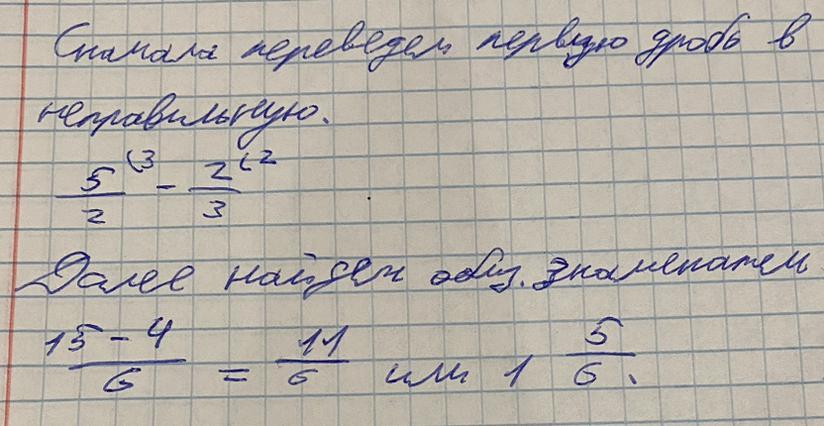 Сначала переведем первую дробь в
неправильную.
5/2 (3 - 2/3 (2
Далее найдем общ. знаменатель
15 - 4/6 = 11/6 или 1 5/6.